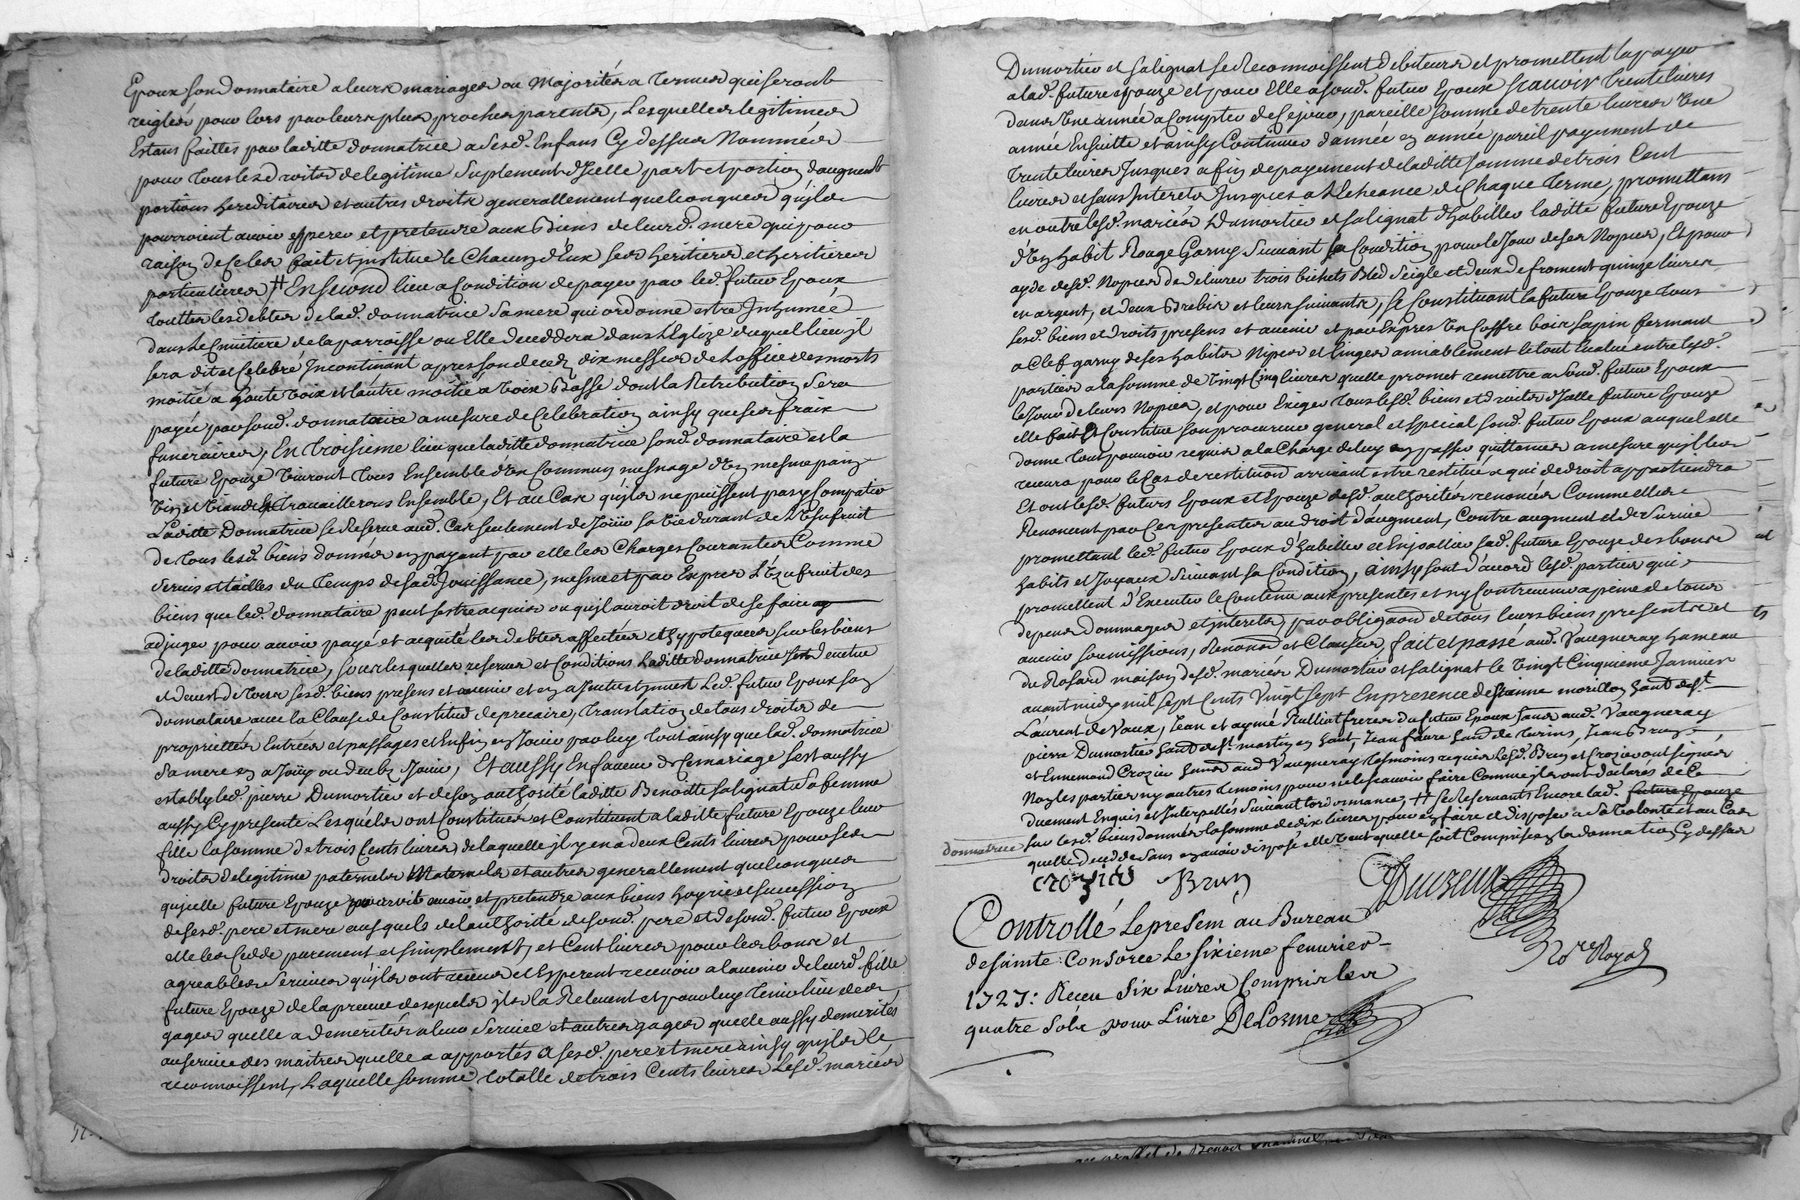 Epoux son donnataire a leurs mariages ou Majorités a termes qui seront
reiglés pour lors par leurs plus proches parents, Lesquelles legitimes
Estans faittes par laditte donnatrice a sesd. Enfans Cy dessus Nommés
pour tous les droits de legitime suplement d'Icelle part et portion d'augment
portions hereditaires et autres droits generallement quelconques qu'ils
pourroient avoir esperer et pretendre aux Biens de leurd. mere qui pour
raison de Ce les fait et institue le Chacun d'Eux ses heritiers et heritieres
particulieres, # En second lieu a Condition de payer par led. futur Epoux
touttes les debtes de lad. donnatrice sa mere qui ordonne estre Inhumée
dans le Cimitiere de la parroisse ou Elle decedera dans l'Eglize duquel lieu jl
sera dit et Celebré Incontinant apres son deceds dix messes de l'office des morts
moitié a haute voix et l'autre moitié a voix Basse dont la Retribution sera
payée par sond. donnataire a mesure de Celebration ainsy que ses fraix
funeraires, En troisieme lieu que laditte donnatrice sond. donnataire et la
future Epouze vivront tous Ensemble d'un Commun mesnage d'un mesme pain
vin et viande et travaillerons Ensemble, Et au Cas qu'ils ne puissent pas y Compatir
Laditte Donnatrice se Reserve aud. Cas seulement de Jouir sa vie durant de l'Usufruit
de tous lesd. biens donnés en payant par elle les Charges Courantes Comme
servis et tailles du temps de sad. Jouissance, mesme et par Expres l'Uzufruit des
biens que led. donnataire peut s'estre acquis ou qu'jl auroit droit de se faire
adjuger pour avoir payé et acquité les debtes affectées et hypotequées sur les biens
de laditte donnatrice, sous lesquelles reserves et Conditions Laditte donnatrice s'est devetue
et devest de tous sesd. biens presens et avenir et en a Jnvetu et Jnvest Led. futur Epoux son
donnataire avec la Clause de Constitud de precaire, translation de tous droits de
proprietté Entrées et passages et Enfin en Jouir par luy tout ainsy que lad. donnatrice
sa mere en a Jouy ou deub Jouir, Et aussy En faveur de Ce mariage s'est aussy
estably led. pierre Dumortier et de son authorité laditte Benoitte Salignat sa femme
aussy Cy presente Lesquels ont Constitués et Constituent a laditte future Epouze leur
fille la somme de trois Cents livres, de laquelle jl y en a deux Cents livres pour ses
droits de legitime paternels Maternels et autres generallement quelconques
qu'elle future Epouze pourroit avoir et pretendre aux biens hoyrie et succession
de sesd. pere et mere ausquels de l'authorité de sond. pere et de sond. futur Epoux
elle les Cedde purement et simplement, et Cent livres pour les bons et
agreables services qu'ils ont receus et Esperent recevoir a l'avenir de leurd. fille
future Epouze de la preuve desquels jls la Relevent et pour luy tenir lieu des
gages quelle a demerités a leur service et autres gages quelle aussy demerités
au service des maitres quelle a apportés a sesd. pere et mere ainsy qu'jls le
reconnoissent, Laquelle somme totalle de trois Cents livres Lesd. mariés
Dumortier et Salignat se Reconnoissent debiteurs et promettent la payer
a lad. future epouze et pour Elle a sond. futur Epoux scavoir trente livres
dans Une année a Compter de Ce jour, pareille somme de trente livres Une
année Ensuitte et ainsy Continuer d'année en année pareil payement de
trente livres Jusques a fin de payement de laditte somme de trois Cent
livres et sans Interets Jusques a l'Echeance de Chaque terme, promettans
en outre lesd. mariés Dumortier et Salignat d'habiller laditte future Epouze
d'Un habit Rouge Garny suivant sa Condition pour le Jour de ses Nopces, Et pour
ayde desd. Nopces de delivrer trois bichets Bled seigle et deux de froment quinze livres
en argent, et deux Brebis et leurs suivants, se Constituant la future Epouze tous
sesd. biens et droits presens et avenir et par Expres Un Coffre bois sapin fermant
a Clef garny de ses habits Nipes et linges amiablement le tout Evalué entre lesd.
parties a la somme de Vingt Cinq livres quelle promet remettre a sond. futur Epoux
le Jour de leurs Nopces, et pour Exiger tous lesd. biens et droits d'Icelle future Epouze
elle fait et Constitue son procureur general et special sond. futur Epoux auquel elle
donne tout pouvoir requis a la Charge de luy en passer quittances a mesure qu'jl les
recevra pour le Cas de restitution arrivant estre restitués a qui de droit appartiendra
Et ont lesd. futurs Epoux et Epouze desd. authorités renoncés Comme elles
Renoncent par Ces presentes au droit d'augment, Contre augment et de survie
promettant led. futur Epoux d'habiller et Enjoallier sad. future Epouze des bons
habits et Joyaux suivant sa Condition, ainsy sont d'acord lesd. parties qui
promettent d'Executer le Contenu aux presentes et n'y Contrevenir a peine de tous
depens dommages et interets, par obligaon de tous leurs biens presents et
avenir soumissions, Renons et Clauses, fait et passé aud. Vaugneray hameau
du Rosard maison desd. mariés Dumortier et Salignat le Vingt Cinquieme Janvier
avant midy mil sept Cents Vingt sept En presence de Etienne morillon hant. de St.
Laurent de Vaux, Jean et aymé Rulliat freres du futur Epoux hants aud. Vaugneray
pierre Dumortier hant de St. martin en haut, Jean faure hant de Turins, Jean Brun
et Ennemond Crozier hants aud Vaugneray tesmoins requis Lesd. Brun et Crozier ont signés
Non les parties ny autres temoins pour ne le scavoir faire Comme jls ont declarés de Ce
Duement Enquis et Interpellés suivant l'ordonnance, # se Reservants Encore lad. future Epouze
donnatrice sur lesd. biens donnés la somme de dix livres pour en faire et Disposer a sa volonté et au Cas
quelle deceda sans en avoir disposé elle veut quelle soit Comprise en la donnation Cy dessus
crozier Brun
Duizeux
Controllé Le presem au Bureau
de sainte Consorce Le sixieme fevrier
1727: Receu six Livres Compris les
quatre sols pour Livre DeLorme
No.re Royal